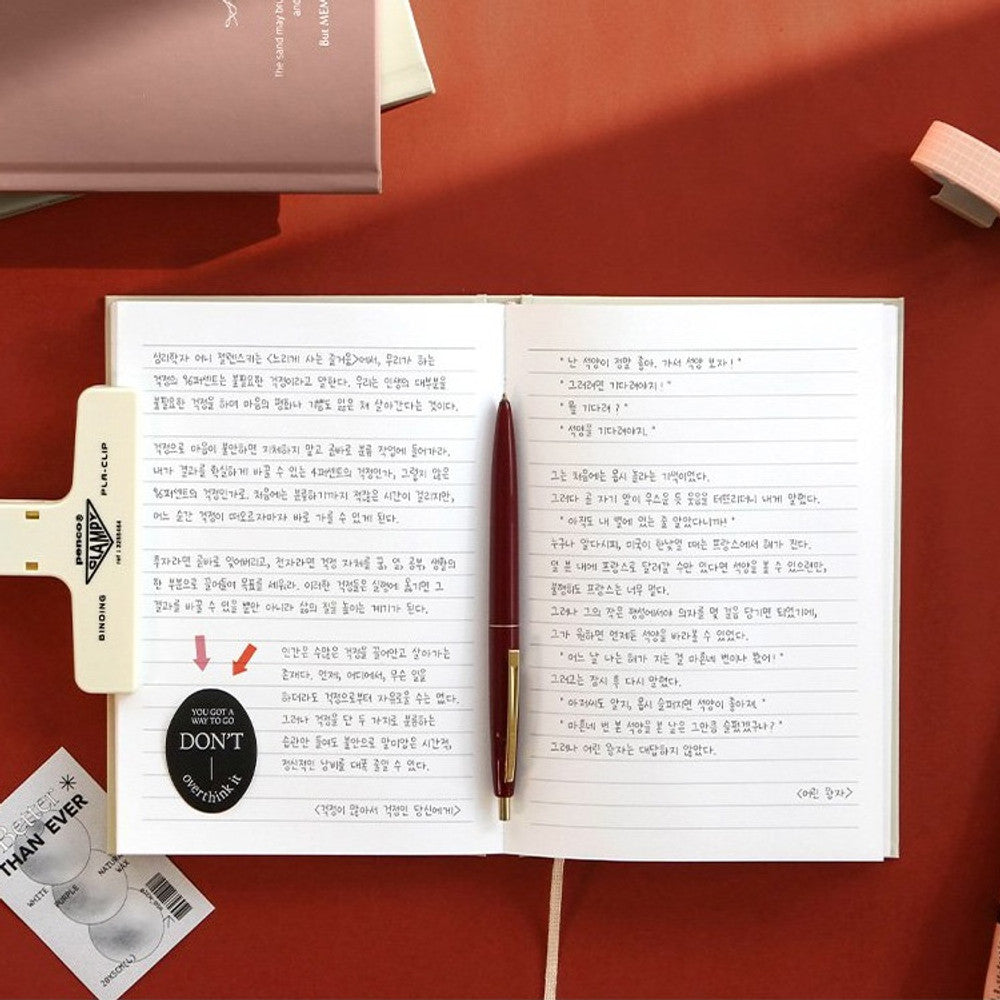 The sand may bru
and
But MEM
심리학자 어니 젤렌스키는 <느리게 사는 즐거움>에서, 우리가 하는
걱정의 96퍼센트는 불필요한 걱정이라고 말한다. 우리는 인생의 대부분을
불필요한 걱정을 하며 마음의 평화나 기쁨도 잃은 채 살아간다는 것이다.
걱정으로 마음이 불안하면 지체하지 말고 곧바로 분류 작업에 들어가라.
내가 결과를 확실하게 바꿀 수 있는 4퍼센트의 걱정인가, 그렇지 않은
96퍼센트의 걱정인가로. 처음에는 분류하기까지 적잖은 시간이 걸리지만,
어느 순간 걱정이 떠오르자마자 바로 가를 수 있게 된다.
후자라면 곧바로 잊어버리고, 전자라면 걱정 자체를 꿈, 일, 공부, 생활의
한 부분으로 끌어들여 목표를 세우라. 이러한 걱정들은 실행에 옮기면 그
결과를 바꿀 수 있을 뿐만 아니라 삶의 질을 높이는 계기가 된다.
인간은 수많은 걱정을 끌어안고 살아가는
존재다. 언제, 어디에서, 무슨 일을
하더라도 걱정으로부터 자유로울 수는 없다.
그러나 걱정을 단 두 가지로 분류하는
습관만 들여도 불안으로 말미암은 시간적,
정신적인 낭비를 대폭 줄일 수 있다.
<걱정이 많아서 걱정인 당신에게>
" 난 석양이 정말 좋아. 가서 석양 보자! "
" 그러려면 기다려야지! "
" 뭘 기다려? "
" 석양을 기다려야지. "
그는 처음에는 몹시 놀라는 기색이었다.
그러다 곧 자기 말이 우스운 듯 웃음을 터뜨리더니 내게 말했다.
" 아직도 내 별에 있는 줄 알았다니까! "
누구나 알다시피, 미국이 한낮일 때는 프랑스에서 해가 진다.
일 분 내에 프랑스로 달려갈 수만 있다면 석양을 볼 수 있으련만,
불행히도 프랑스는 너무 멀다.
그러나 그의 작은 행성에서야 의자를 몇 걸음 당기면 되었기에,
그가 원하면 언제든 석양을 바라볼 수 있었다.
" 어느 날 나는 해가 지는 걸 마흔네 번이나 봤어! "
그러고는 잠시 후 다시 말했다.
" 아저씨도 알지, 몹시 슬퍼지면 석양이 좋아져. "
" 마흔네 번 본 석양을 본 날은 그만큼 슬펐겠구나? "
그러나 어린 왕자는 대답하지 않았다.
<어린 왕자>
penco®
CLAMPY
PLA-CLIP
BINDING
YOU GOT A
WAY TO GO
DON'T
overthink it
Better
THAN EVER
WHITE
PURPLE
NATURAL
WAX
20X5CM(4)